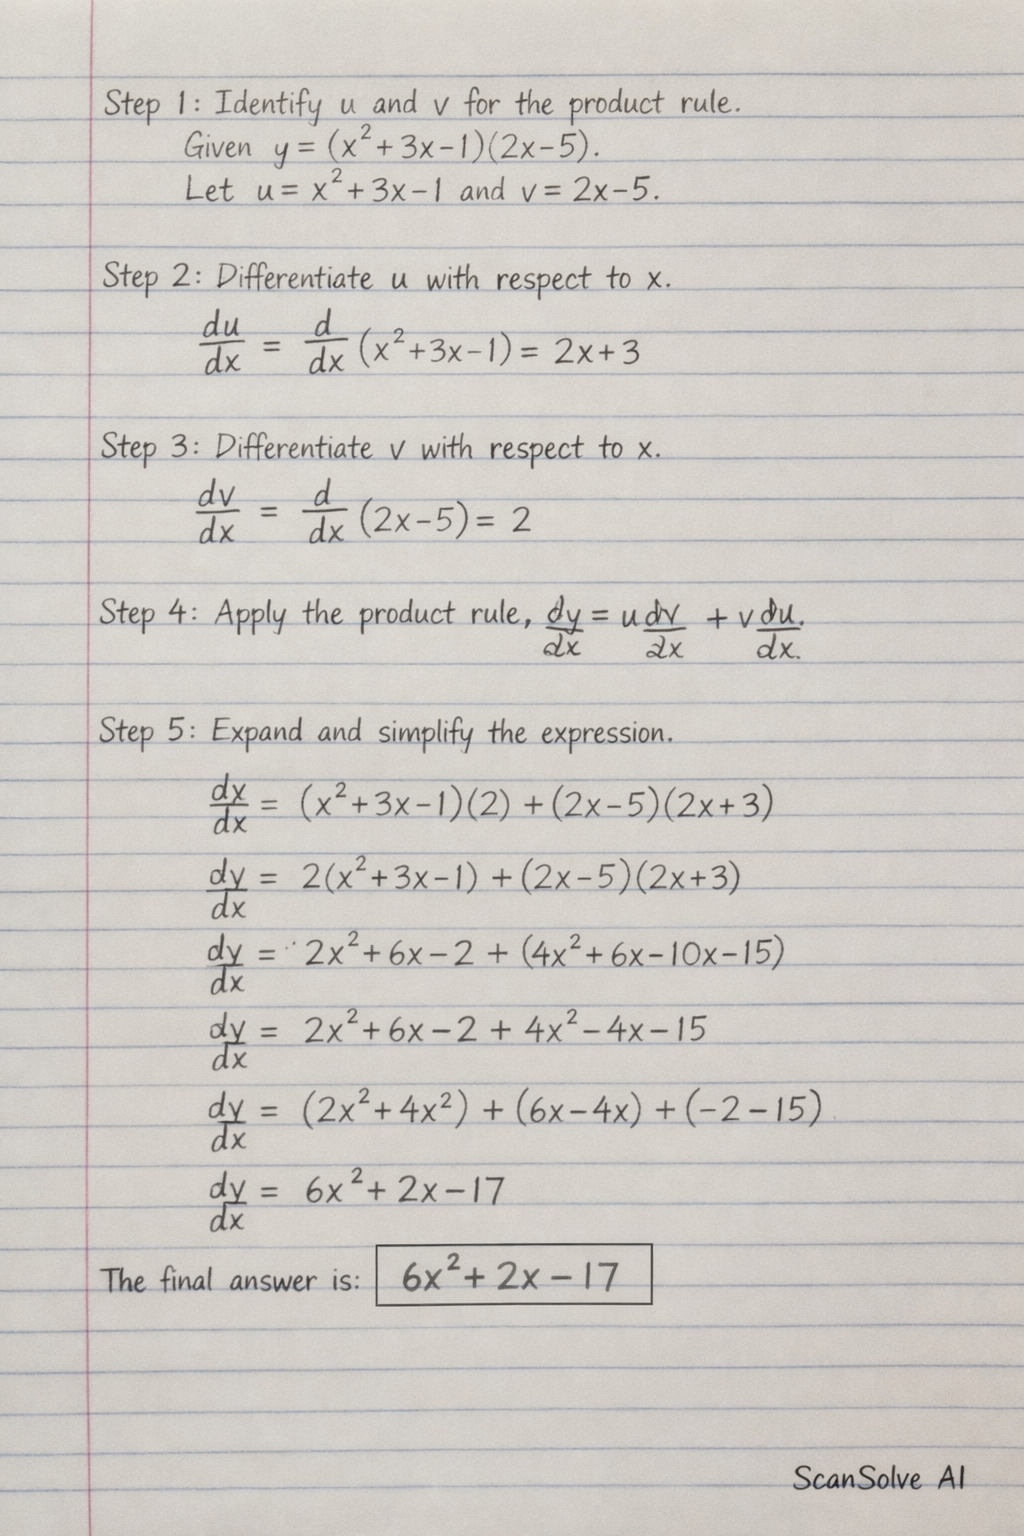 Step 1: Identify u and v for the product rule.
Given y = (x²+3x-1)(2x-5).
Let u = x²+3x-1 and v = 2x-5.
Step 2: Differentiate u with respect to x.
du/dx = d/dx (x²+3x-1) = 2x+3
Step 3: Differentiate v with respect to x.
dv/dx = d/dx (2x-5) = 2
Step 4: Apply the product rule, dy/dx = u dv/dx + v du/dx.
Step 5: Expand and simplify the expression.
dx/dx = (x²+3x-1)(2) + (2x-5)(2x+3)
dy/dx = 2(x²+3x-1) + (2x-5)(2x+3)
dy/dx = 2x²+6x-2 + (4x²+6x-10x-15)
dy/dx = 2x²+6x-2 + 4x²-4x-15
dy/dx = (2x²+4x²) + (6x-4x) + (-2-15)
dy/dx = 6x²+2x-17
The final answer is: 6x²+2x-17
ScanSolve AI